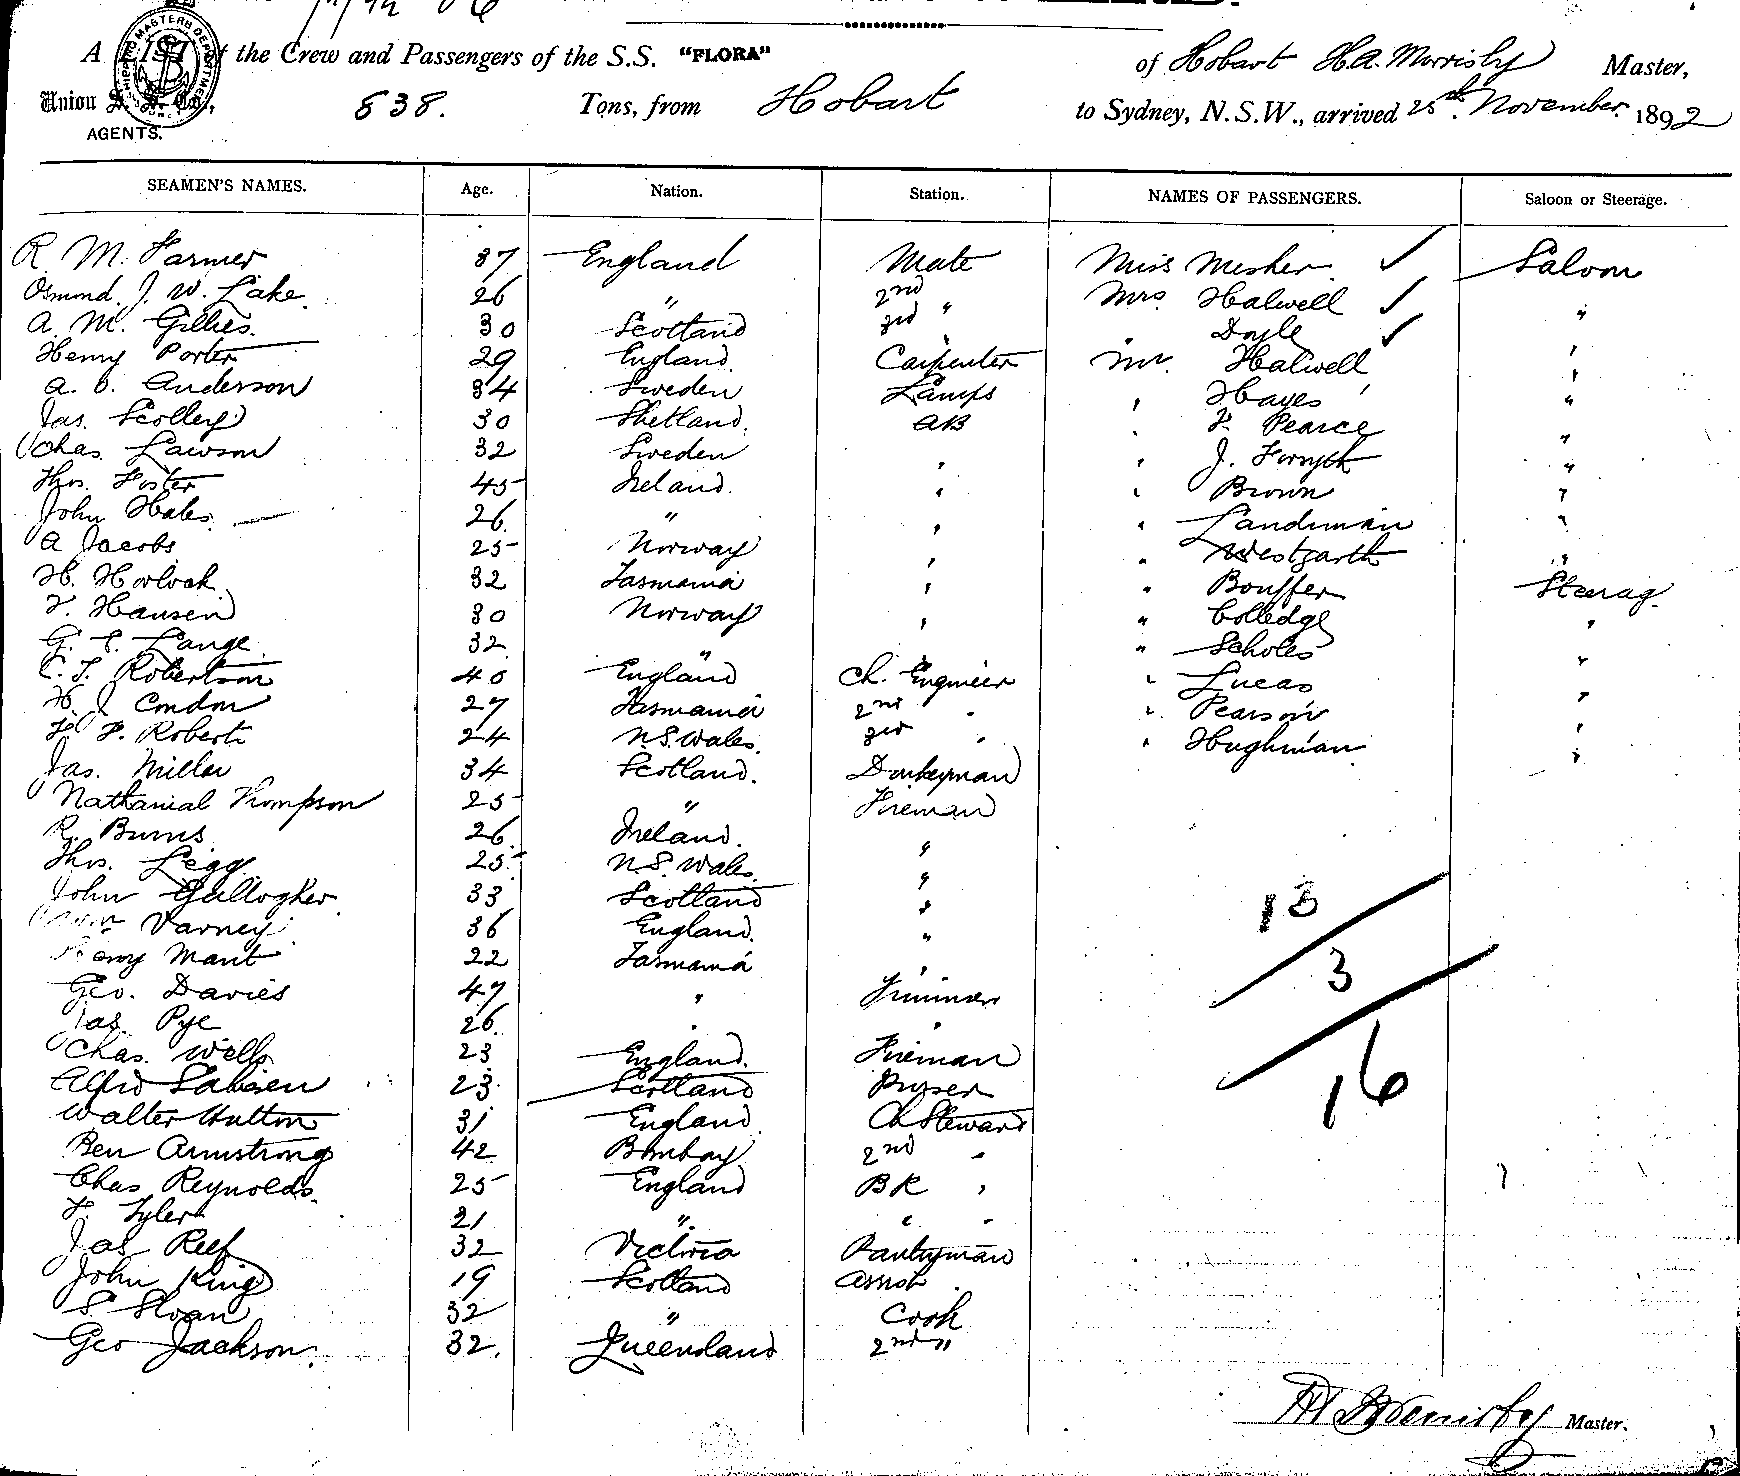 A LIST of the Crew and Passengers of the S.S. "FLORA" of Hobart H.A. Morrisby Master,
Union S. S. Co., AGENTS. 838. Tons, from Hobart to Sydney, N.S.W., arrived 25th November 1892
SEAMEN'S NAMES. Age. Nation. Station. NAMES OF PASSENGERS. Saloon or Steerage.
R M. Farmer 37 England Mate Miss Mesher ✓ Saloon
Osmund. J. W. Lake. 26 " 2nd Mrs Halwell ✓ "
A. M. Gillies. 30 Scotland 3rd " " Doyle ✓
Henry Porter 29 England Carpenter Mr. Halwell "
A. O. Anderson 34 Sweden Lamps " Hayes "
Jas. Scolley 30 Shetland. AB " F. Pearce "
Chas. Lawson 32 Sweden " " J. Forsyth "
Thos. Foster 45 Ireland. " " Brown "
John Hales 26 " " " Landsman "
A Jacobs 25 Norway " " Westgarth "
H. Horlock 32 Tasmania " " Bouffer Steerag.
F. Hansen 30 Norway " " Colledge "
G. E. Lange 32 " " " Scholes "
C. T. Robertson 40 England Ch. Engineer " Lucas "
H. J Condon 27 Tasmania 2nd " " Pearson "
F. P. Roberts 24 N.S. Wales. 3rd " " Hughman "
Jas. Miller 34 Scotland. Donkeyman
Nathanial Thompson 25 " Fireman
R. Burns 26 Ireland. "
Thos. Legg 25 N.S. Wales "
John Gallogher 33 Scotland "
Varney 36 England. "
Henry Mant 22 Tasmania "
Geo. Davies 47 " Trimmer
Jas Pye 26 " "
Chas. Wells 23 England. Fireman
Alfred 23 Scotland Purser
Walter Hutton 31 England Ch Steward
Ben Armstrong 42 Bombay 2nd "
Chas Reynolds 25 England BK "
F. Tyler 21 " " "
Jas Reef 32 Victoria Pantryman
John King 19 Scotland Assist
S Sloan 32 " Cook
Geo Jackson. 32. Queensland 2nd "
13
3
16
Master.